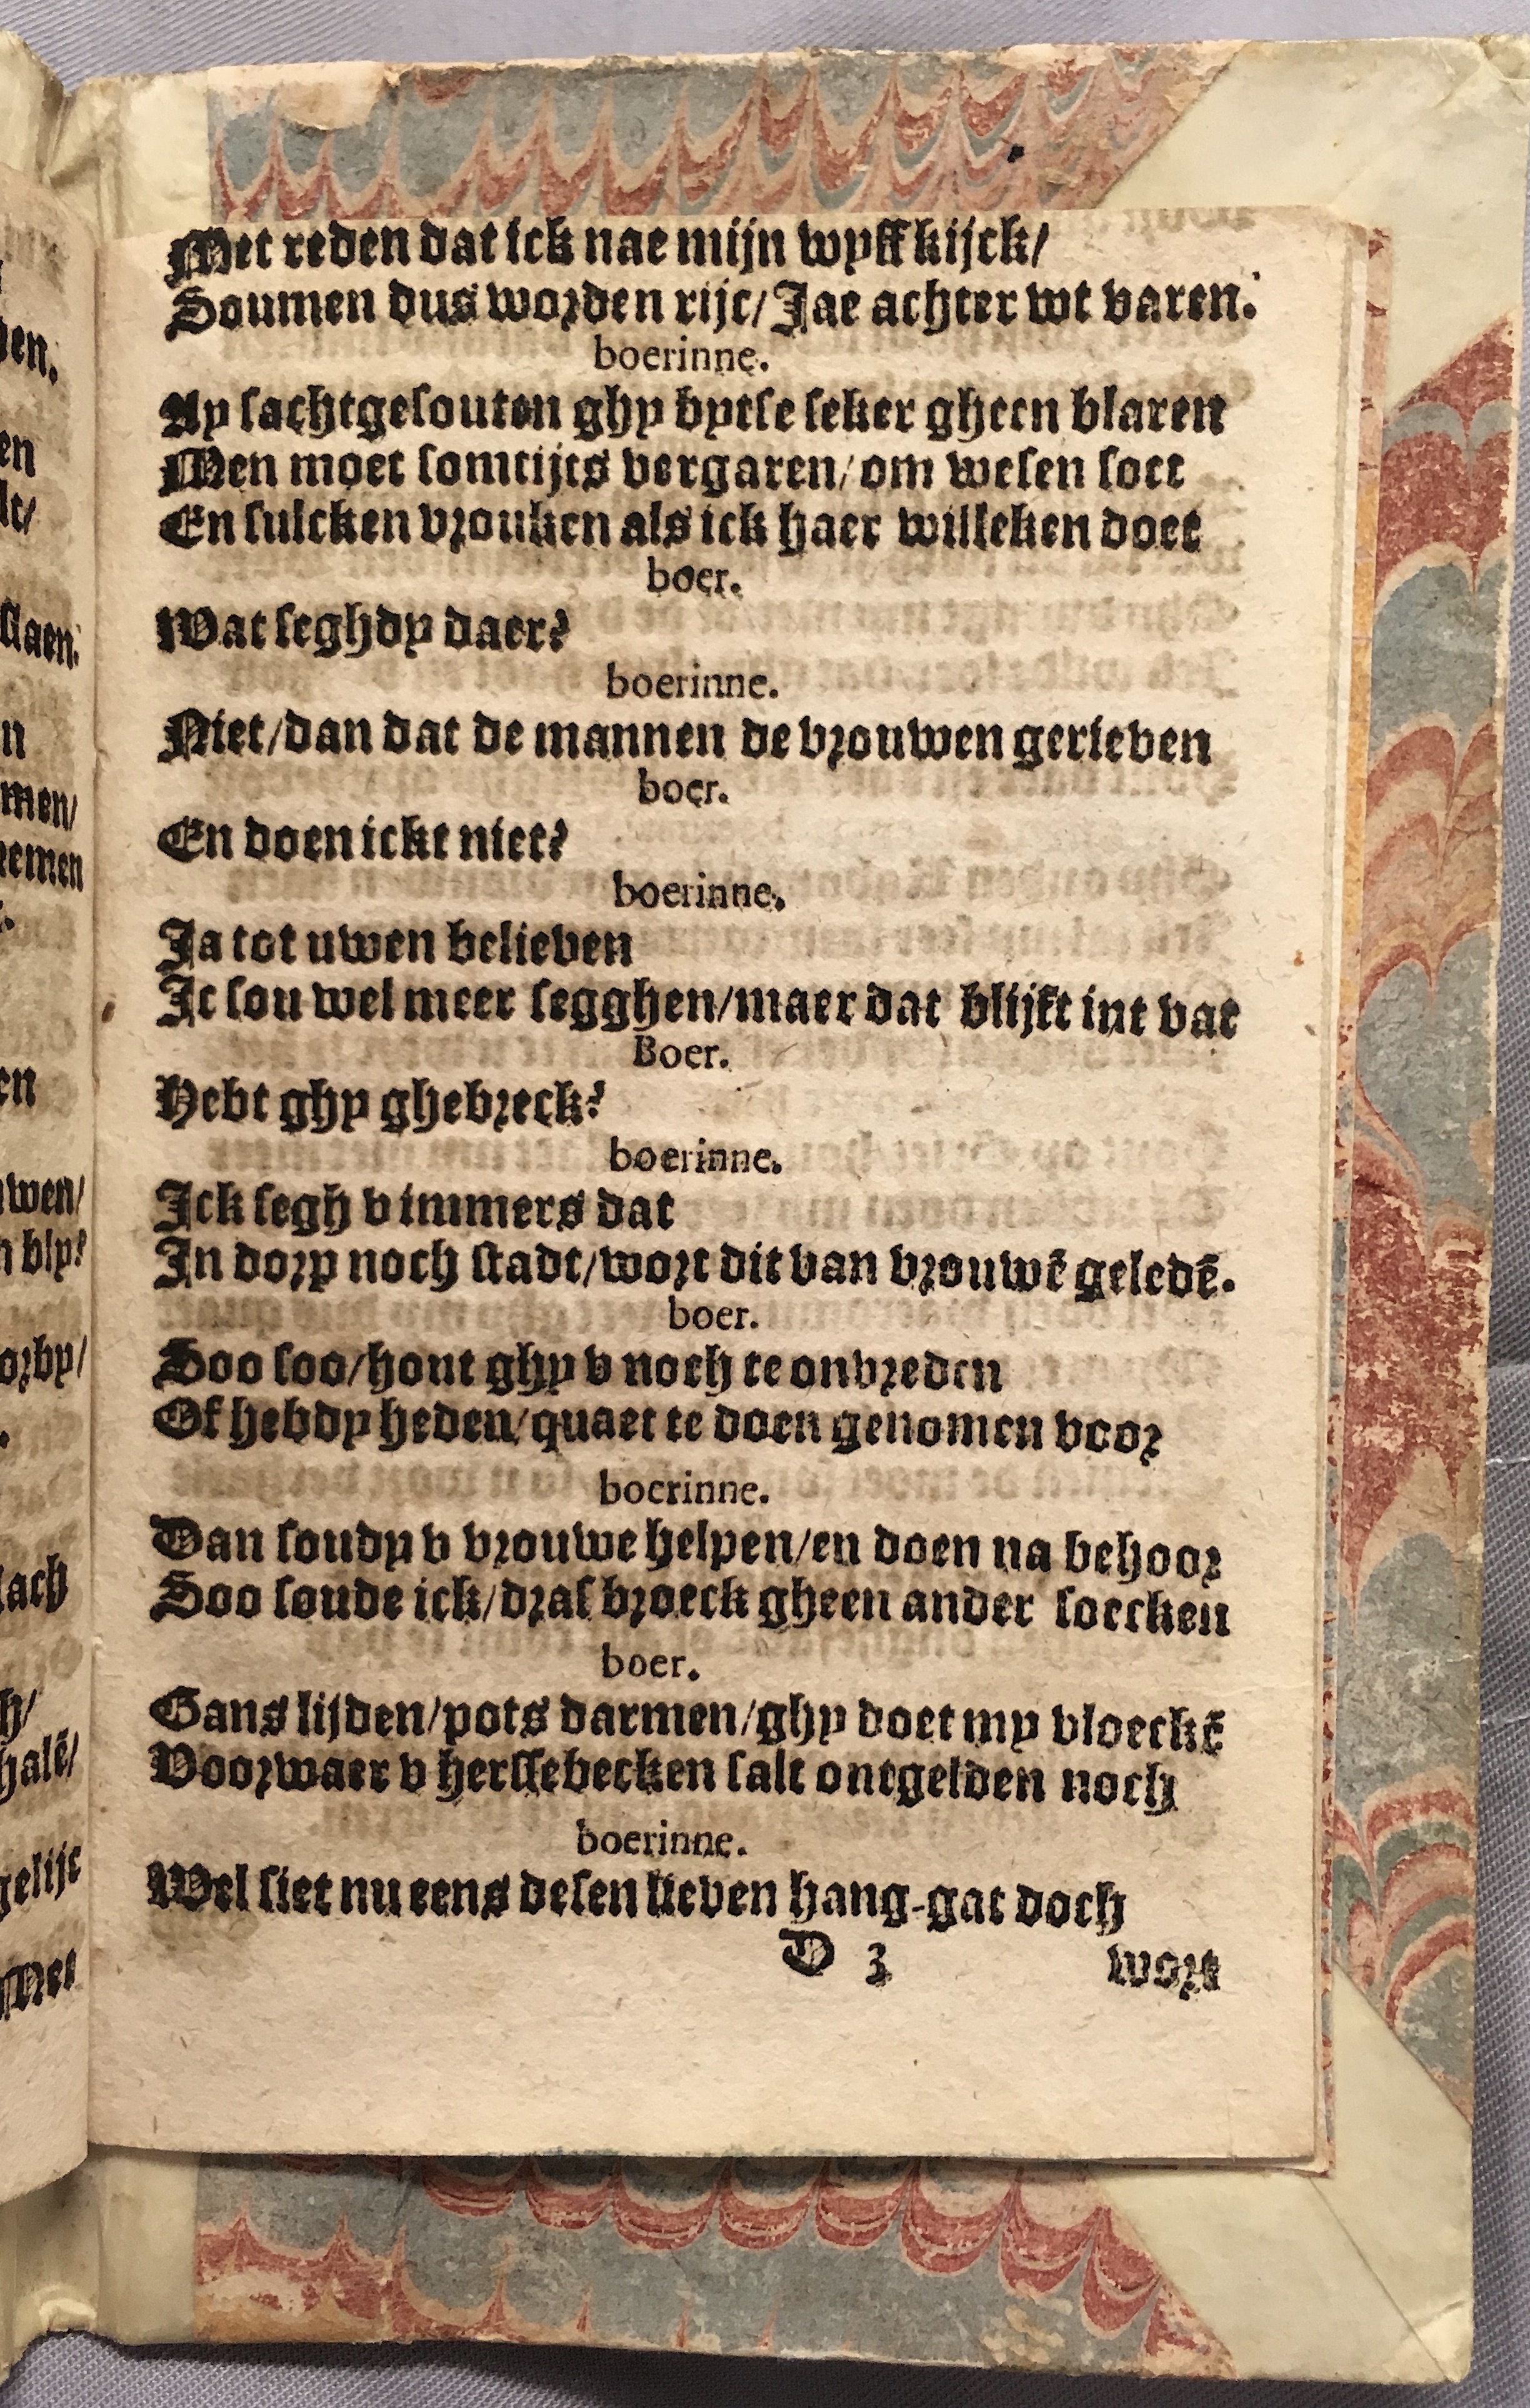 Met reden dat ick nae mijn wyff kijck/
Soumen dus worden rijc/Jae achter wt varen.
boerinne.
Ay sachtgesouten ghy bytse seker gheen blaren
Men moet somtijts vergaren/om wesen soet
En sulcken vrouken als ick haer willeken doet
boer.
Wat seghdy daer?
boerinne.
Niet/dan dat de mannen de vrouwen gerieven
boer.
En doen ickt niet?
boerinne.
Ja tot uwen believen
Ic sou wel meer segghen/maer dat blijft int vat
Boer.
Hebt ghy ghebreck?
boerinne.
Ick segh v immers dat
In dorp noch stadt/wort dit van vrouwē geledē.
boer.
Soo soo/hout ghy v noch te onvreden
Of hebdy heden/quaet te doen genomen voor
boerinne.
Dan soudy v vrouwe helpen/en doen na behoor
Soo soude ick/dras broeck gheen ander soecken
boer.
Gans lijden/pots darmen/ghy doet my vloeckē
Voorwaer v herssebecken salt ontgelden noch
boerinne.
Wel siet nu eens desen lieven hang-gat doch
D 3 wort